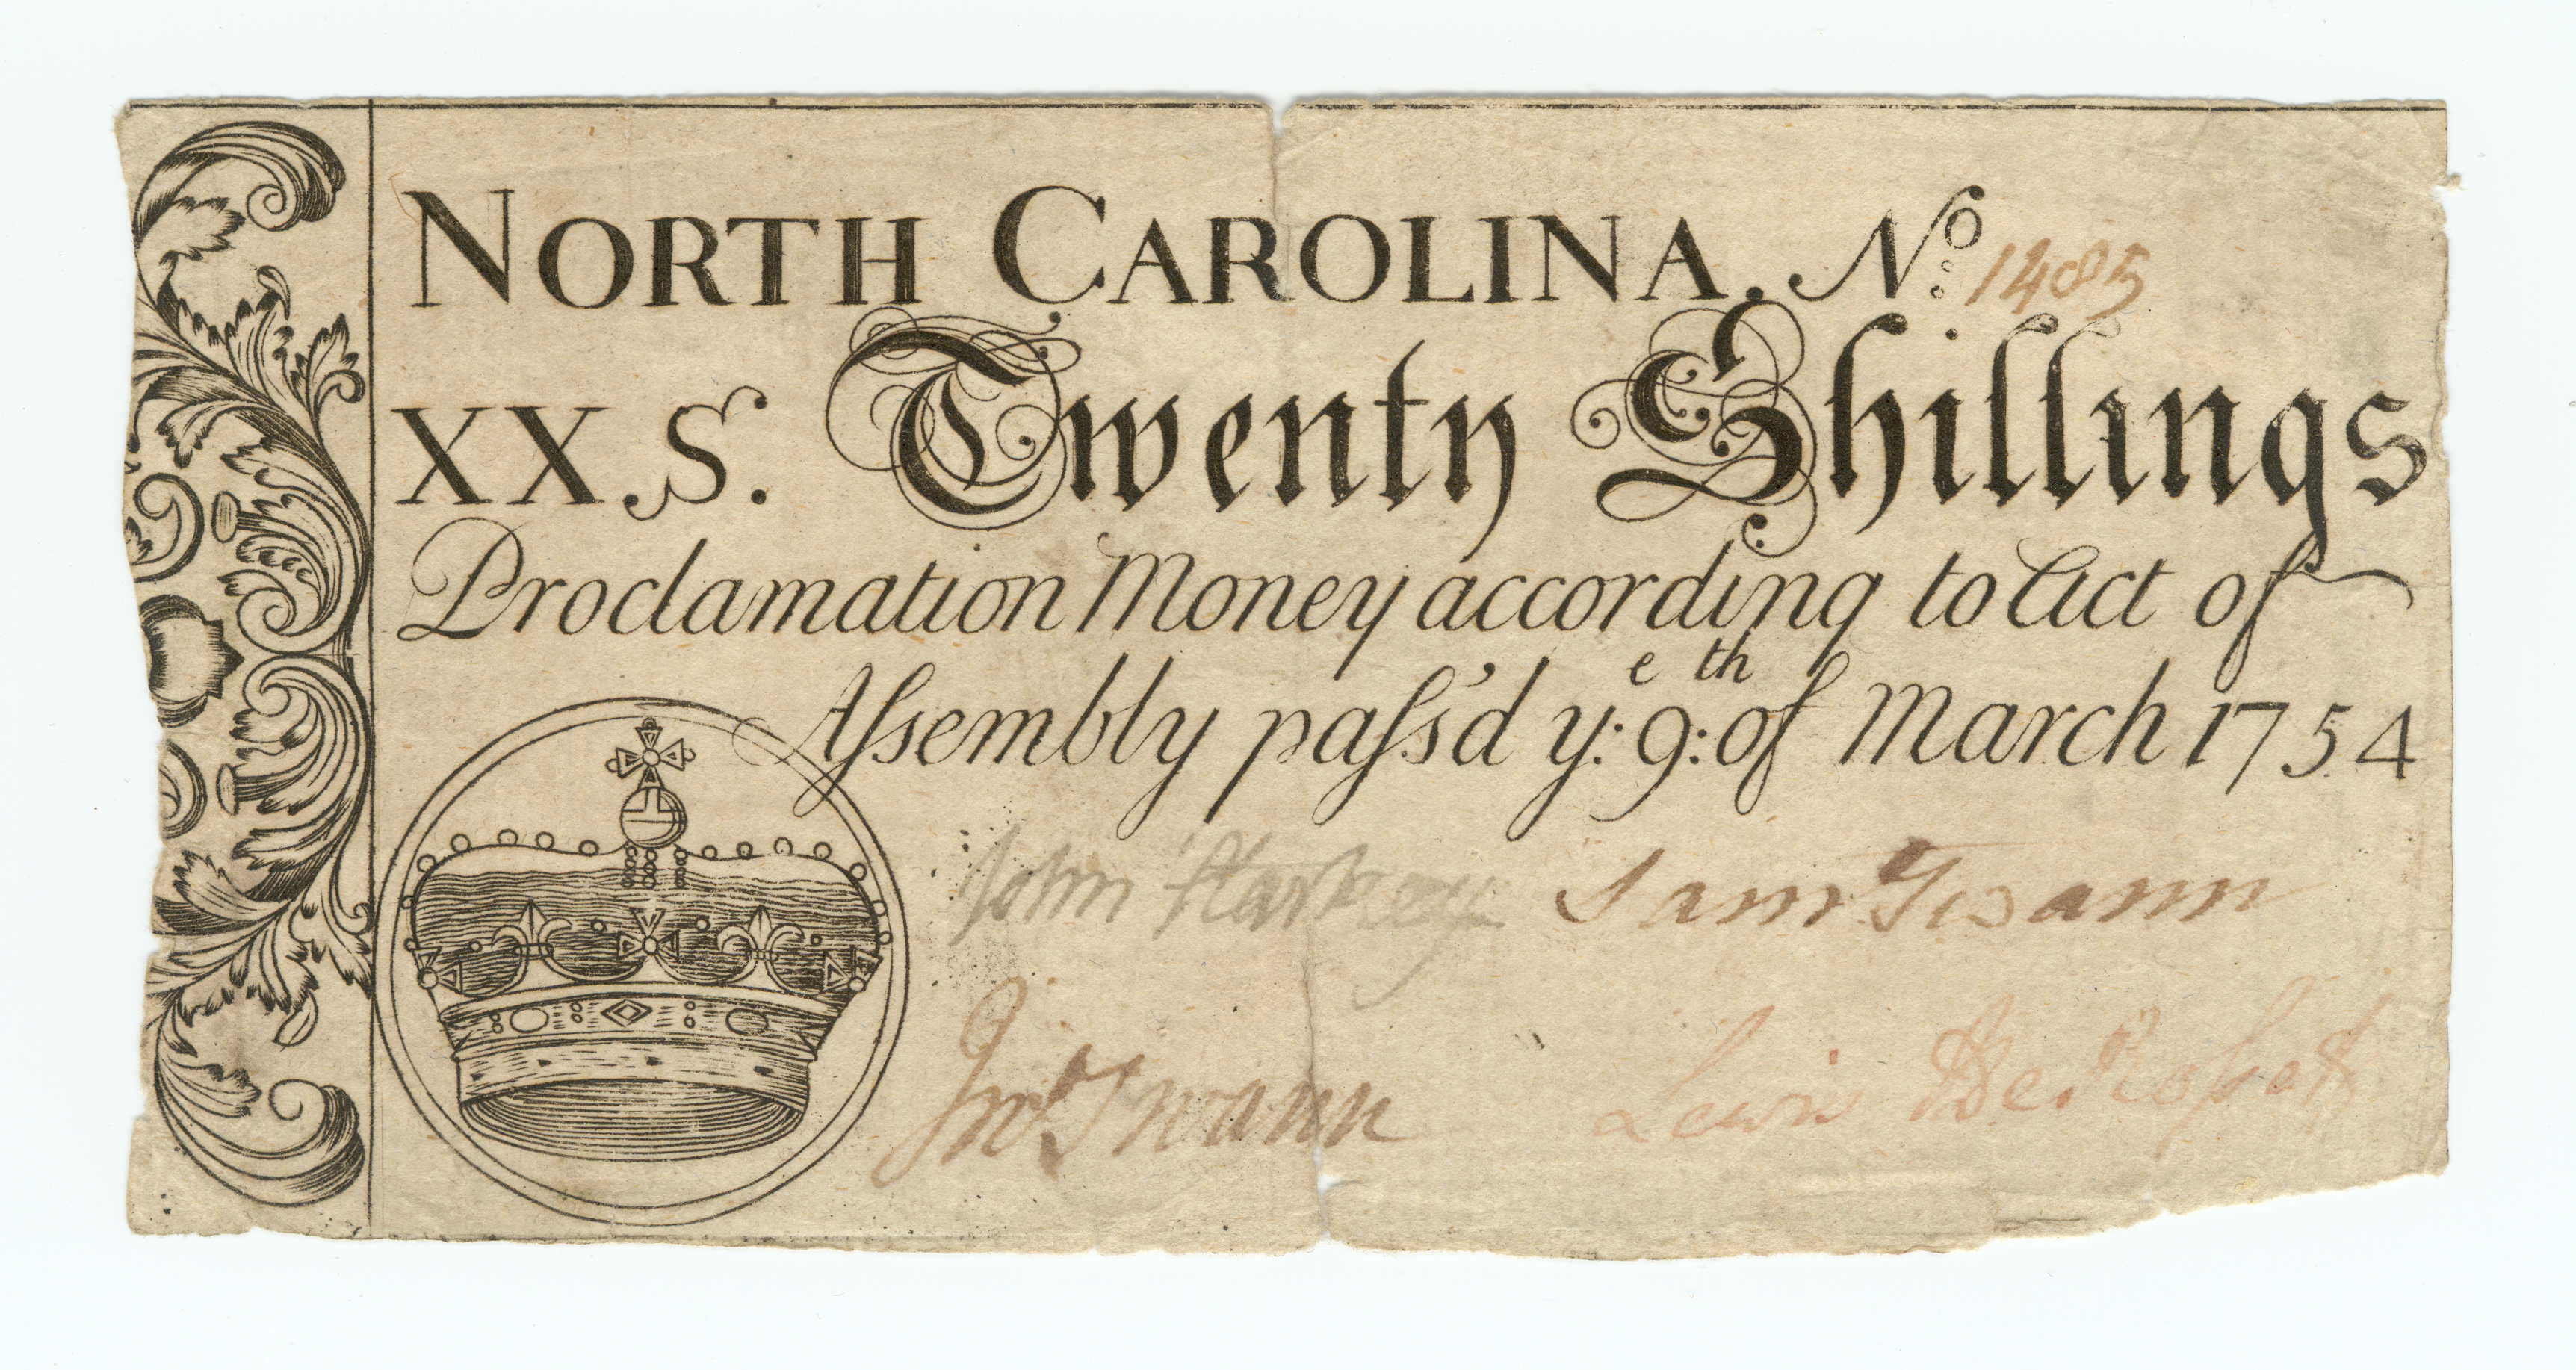 NORTH CAROLINA. No: 1485
XX.S. Twenty Shillings
Proclamation Money according to Act of
Aſsembly paſs'd ye: 9th: of March 1754
John Starkey Sam Swann
Jno Swann Lewis DeRoſsett